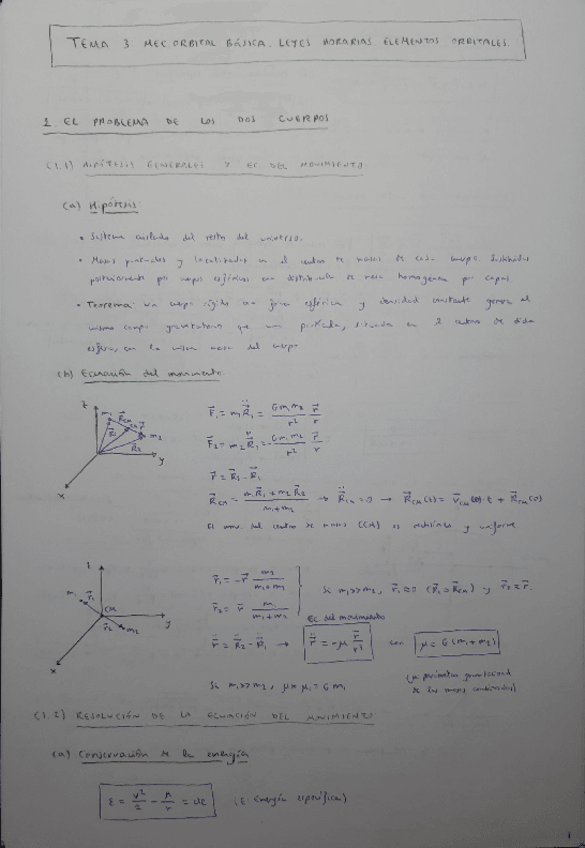 TEMA 3: MEC. ORBITAL BÁSICA. LEYES HORARIAS ELEMENTOS ORBITALES.
1 EL PROBLEMA DE LOS DOS CUERPOS
(1.1) HIPÓTESIS GENERALES Y EC. DEL MOVIMIENTO
(a) Hipótesis:
• Sistema aislado del resto del universo.
• Masas puntuales y localizadas en el centro de masas de cada cuerpo. Sustituidas
posteriormente por cuerpos esféricos con distribución de masa homogénea por capas.
• Teorema: un cuerpo rígido con forma esférica y densidad constante genera el
mismo campo gravitatorio que una partícula, situada en el centro de dicha
esfera, con la misma masa del cuerpo
(b) Ecuación del movimiento
z m₁ R⃗_CM CM r⃗ m₂ R⃗₁ R⃗₂ y x
F⃗₁ = m₁ R⃗̈₁ = G m₁ m₂ / r² r⃗ / r
F⃗₂ = m₂ R⃗̈₂ = - G m₁ m₂ / r² r⃗ / r
r⃗ = R⃗₂ - R⃗₁
R⃗_CM = (m₁ R⃗₁ + m₂ R⃗₂) / (m₁ + m₂) → R⃗̈_CM = 0 → R⃗_CM(t) = V⃗_CM(0)·t + R⃗_CM(0)
El mov. del centro de masas (CM) es rectilíneo y uniforme
z m₁ r⃗₁ CM r⃗₂ m₂ y x
r⃗₁ = - r⃗ m₂ / (m₁ + m₂)
r⃗₂ = r⃗ m₁ / (m₁ + m₂)
Si m₁ >> m₂, r⃗₁ ≈ 0 (R⃗₁ ≈ R⃗_CM) y r⃗₂ ≈ r⃗.
Ec del movimiento
r⃗̈ = R⃗̈₂ - R⃗̈₁ → r⃗̈ = -μ r⃗ / r³ con μ = G (m₁ + m₂)
Si m₁ >> m₂, μ ≈ μ₁ = G m₁
(μ parámetro gravitacional
de las masas combinadas)
(1.2) RESOLUCIÓN DE LA ECUACIÓN DEL MOVIMIENTO
(a) Conservación de la energía
ε = v² / 2 - μ / r = cte (ε: Energía específica)
1